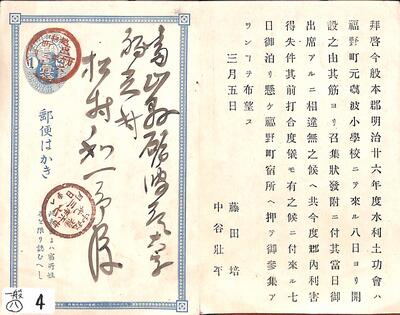 拜啓今般本郡明治廿六年度水利土功會ハ
福野町元礪波小學校ニ於テ來ル八日ヨリ開
設之由其筋ヨリ召集狀發附ニ付其當日御
出席アルニ相違無之候ヘ共今度郡內利害
得失件其前打合度儀モ有之候ニ付來ル七
日御泊リ懸ケ福野町宿所ヘ押テ御參集ア
ランコヲ希望ス
三月五日
藤田培
中谷壯平
郵便はかき
富山縣礪波郡
松村和一郎殿
一般
八
4